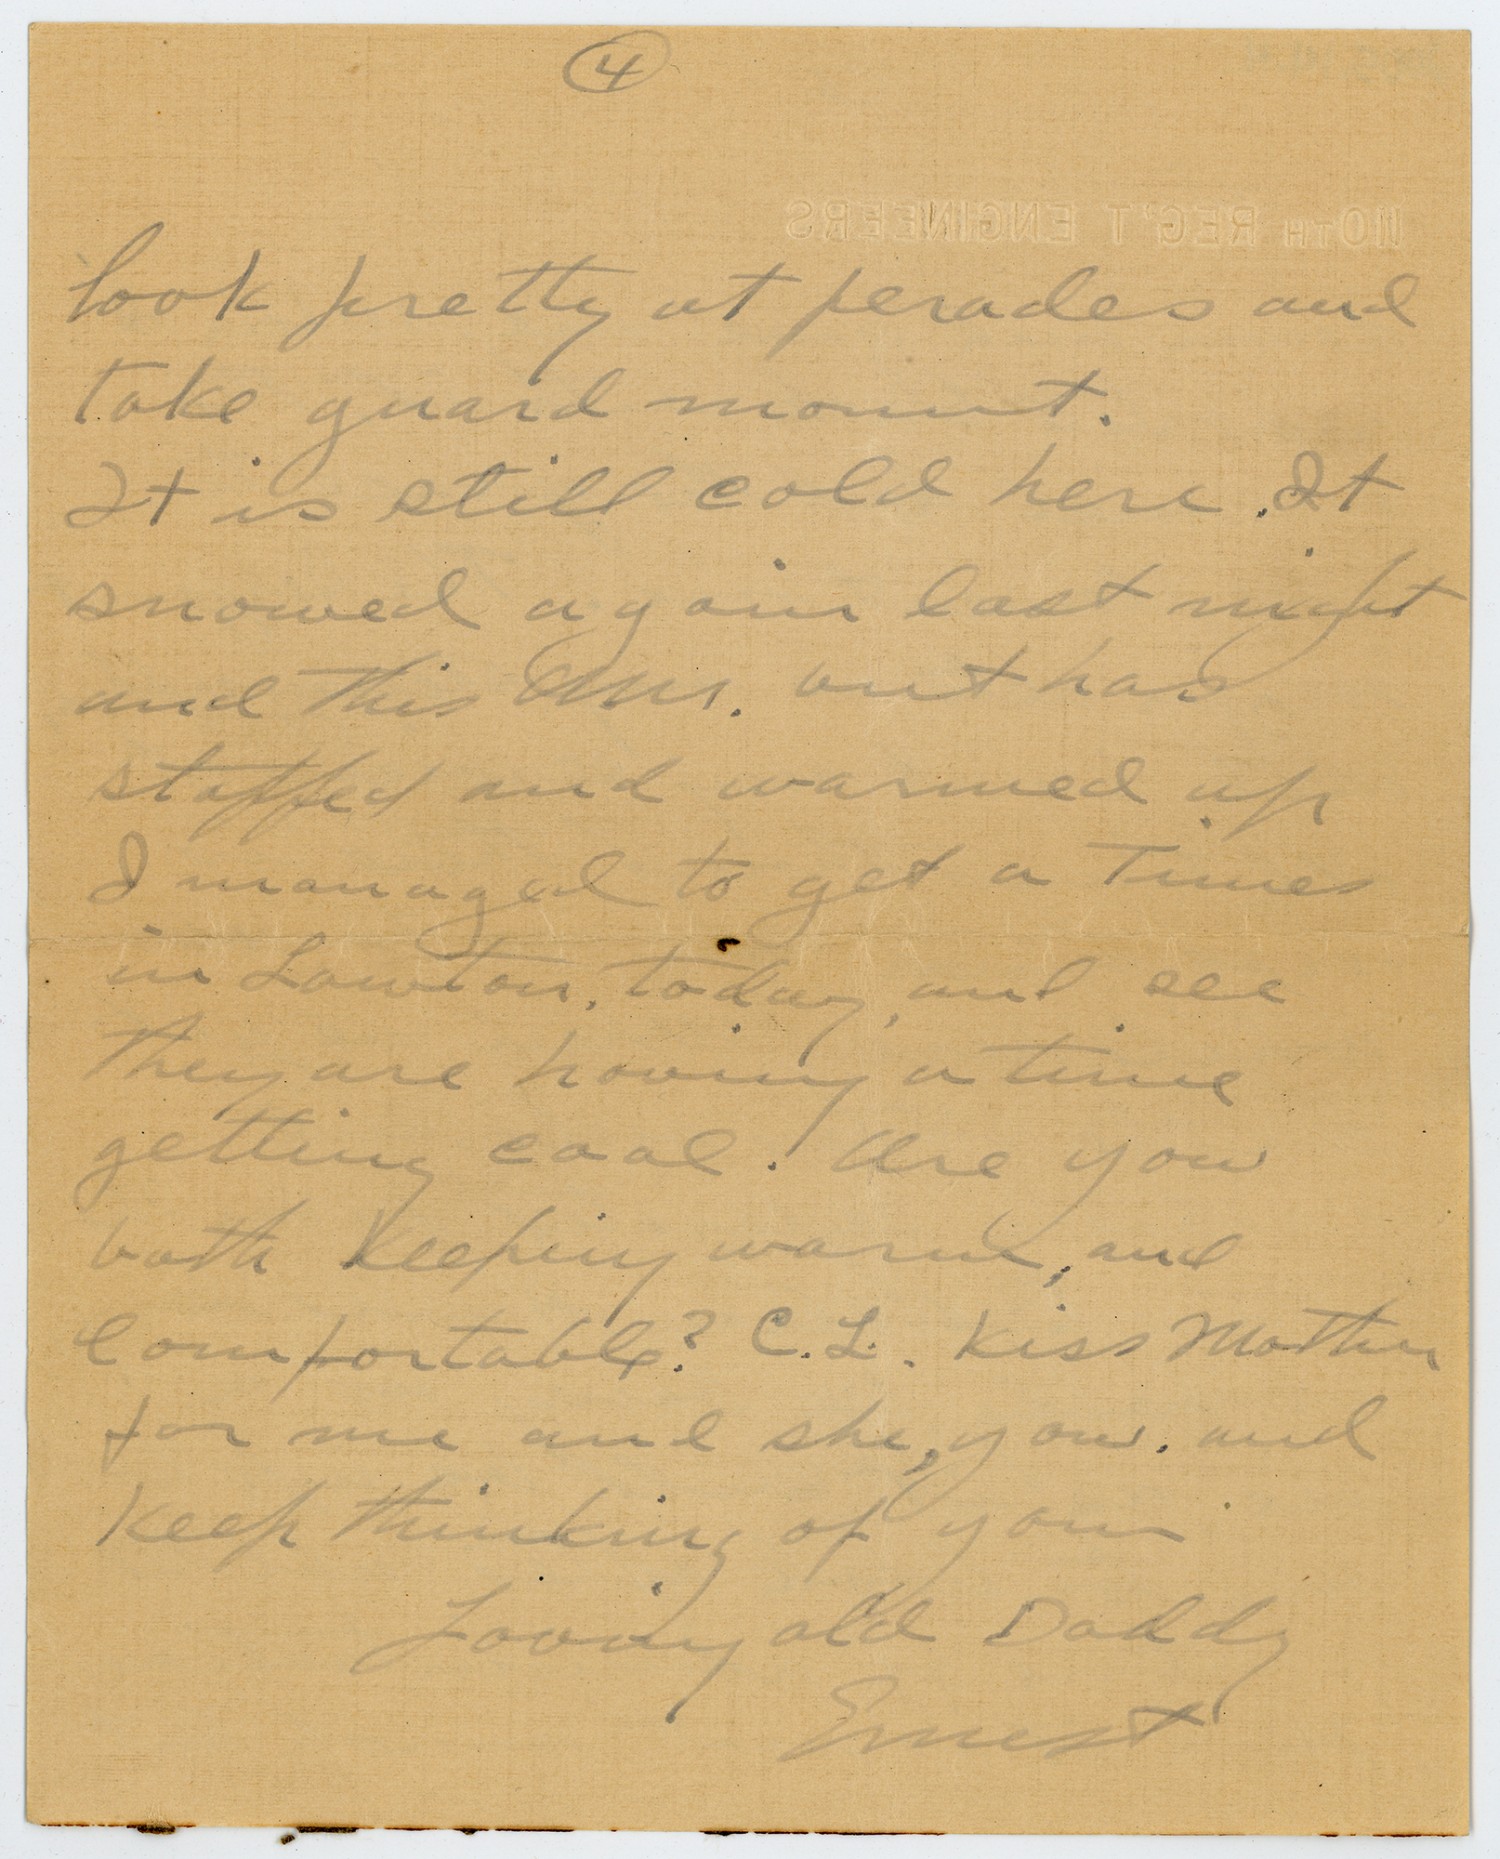 4
110TH REG'T ENGINEERS
look pretty at perades and
take guard mount.
It is still cold here. It
snowed again last night
and this AM. but has
stopped and warmed up
I managed to get a Times
in Lawton, today, and see
they are having a time
getting coal. Are you
both keeping warm, and
comfortable? C.L. Kiss Mother
for me and she, you. and
keep thinking of your
Loving old Daddy
Ernest